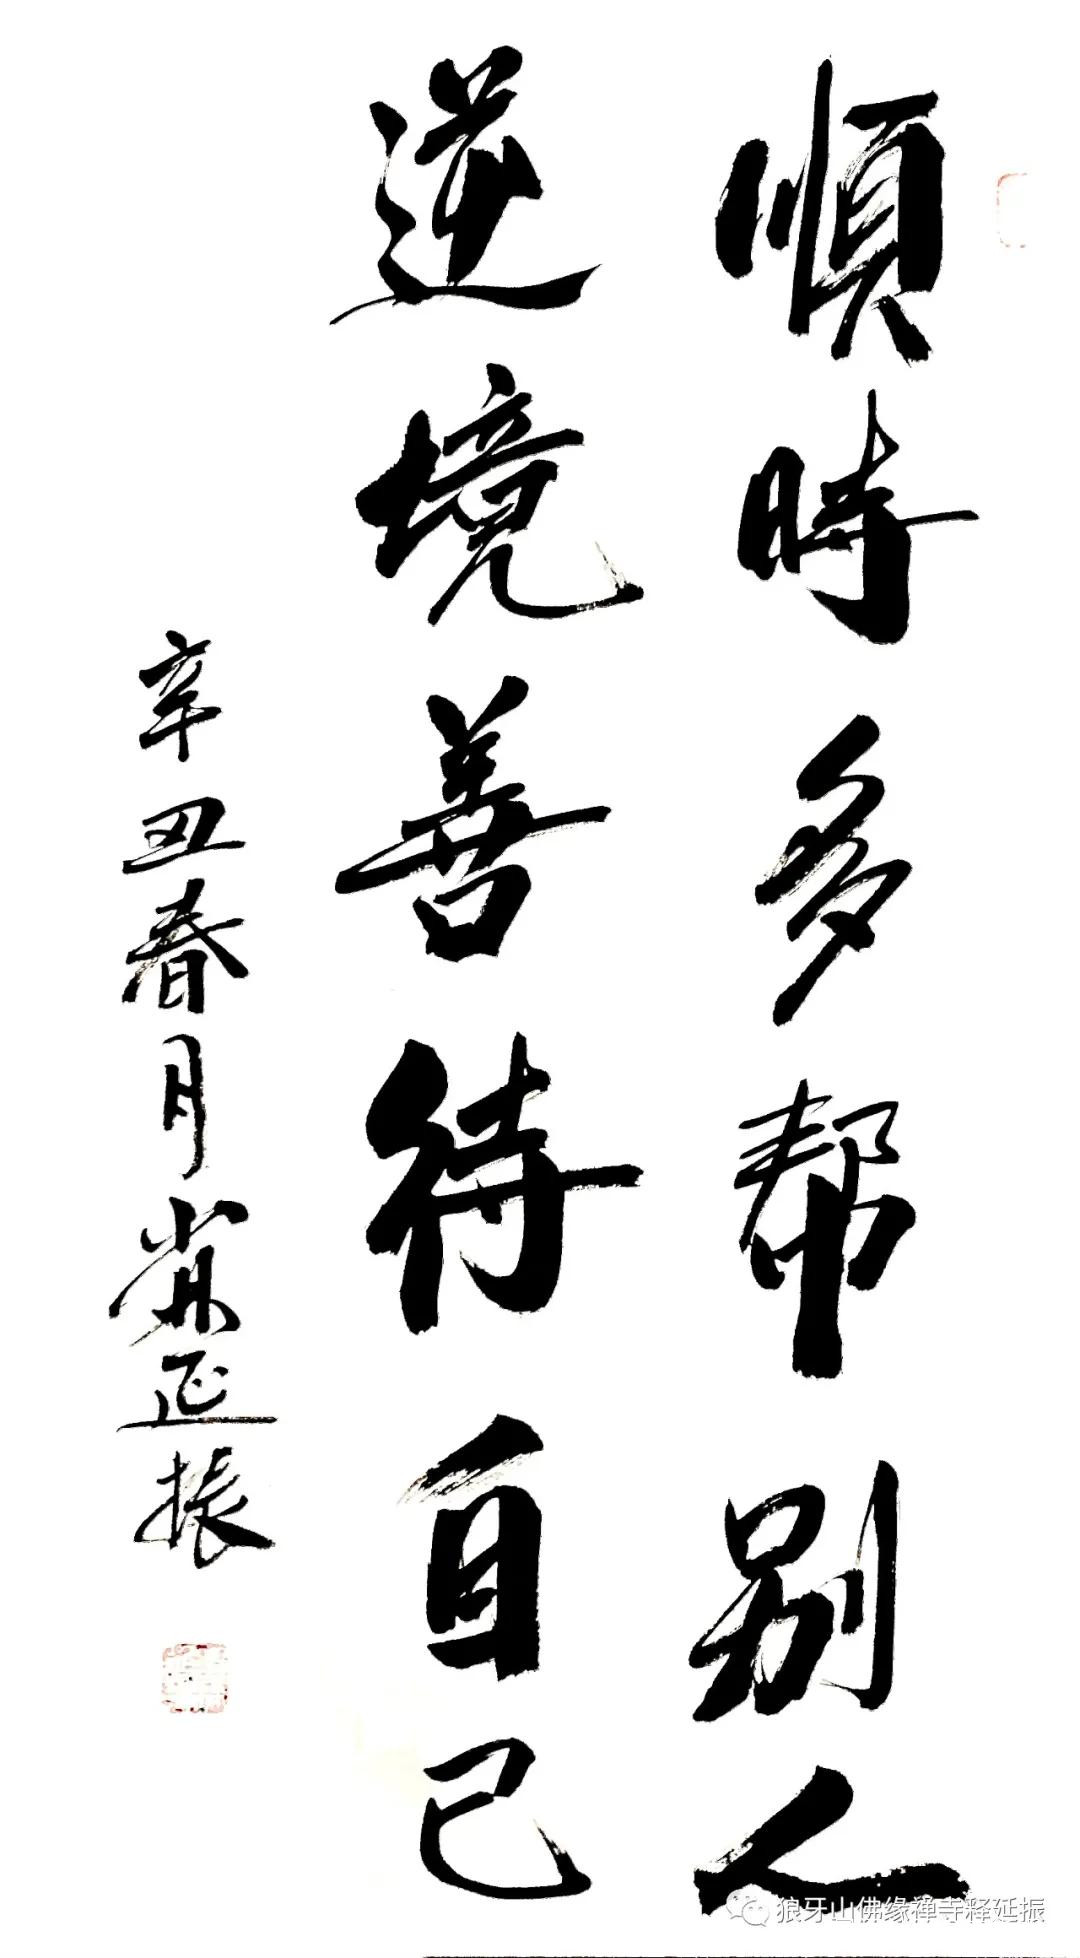 順時多帮别人
逆境善待自己
辛丑春月 延振
狼牙山佛缘禅寺释延振